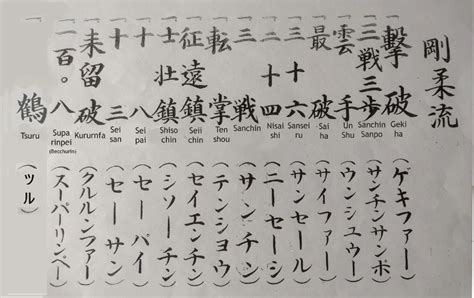 剛柔流
「撃破 Geki ha （ゲキファー）
「三戦三歩 Sanchin Sanpo （サンチンサンボ）
「雲手 Un Shu （ウンシュウー）
「最破 Sai ha （サイファー）
「三十六 Sansei ru （サンセール）
「二十四 Nisai shi （ニーセーシ）
「三戦 Sanchin （サンチン）
「転掌 Ten shou （テンショウ）
「征遠鎮 Seii chin （セイエンチン）
「士壮鎮 Shiso chin （シソーチン）
「十八 Sei pai （セーパイ）
「十三 Sei san （セーサン）
「未留破 Kururnfa （クルルンファー）
「一百〇八 Supa rinpei (Becchurin) （スーパーリンペー）
「鶴 Tsuru （ツル）